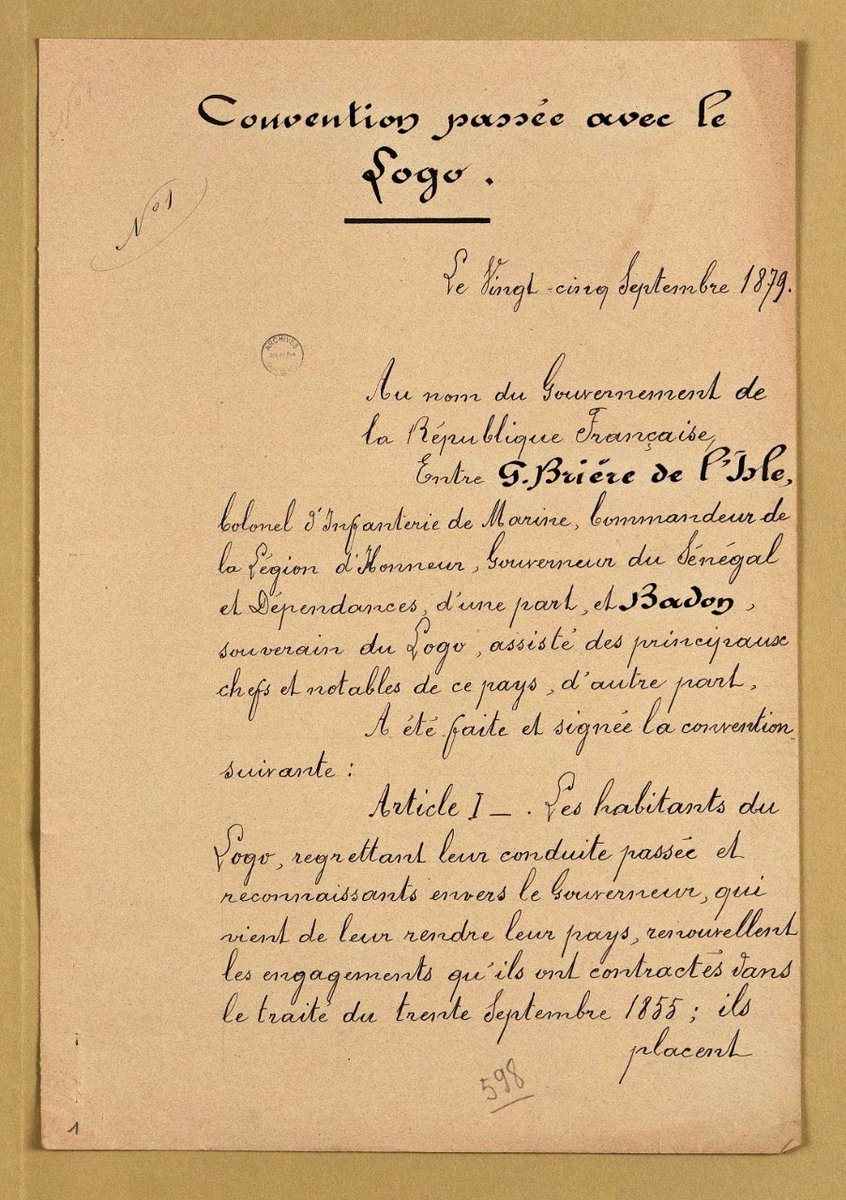 Convention passée avec le
Logo.
N° 1
Le Vingt-cinq Septembre 1879.
ARCHIVES
Au nom du Gouvernement de
la République Française,
Entre G. Brière de l'Isle,
Colonel d'Infanterie de Marine, Commandeur de
la Légion d'Honneur, Gouverneur du Sénégal
et Dépendances, d'une part, et Badon,
souverain du Logo, assisté des principaux
chefs et notables de ce pays, d'autre part,
A été faite et signée la convention
suivante :
Article I — . Les habitants du
Logo, regrettant leur conduite passée et
reconnaissants envers le Gouverneur, qui
vient de leur rendre leur pays, renouvellent
les engagements qu'ils ont contractés dans
le traité du trente Septembre 1855 ; ils
placent
598
1